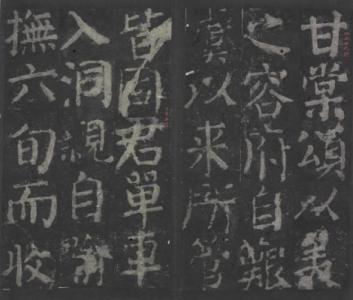 甘棠頌以美
之容府自艱
虞以来所管
皆固君單車
入洞親自
撫六旬而收